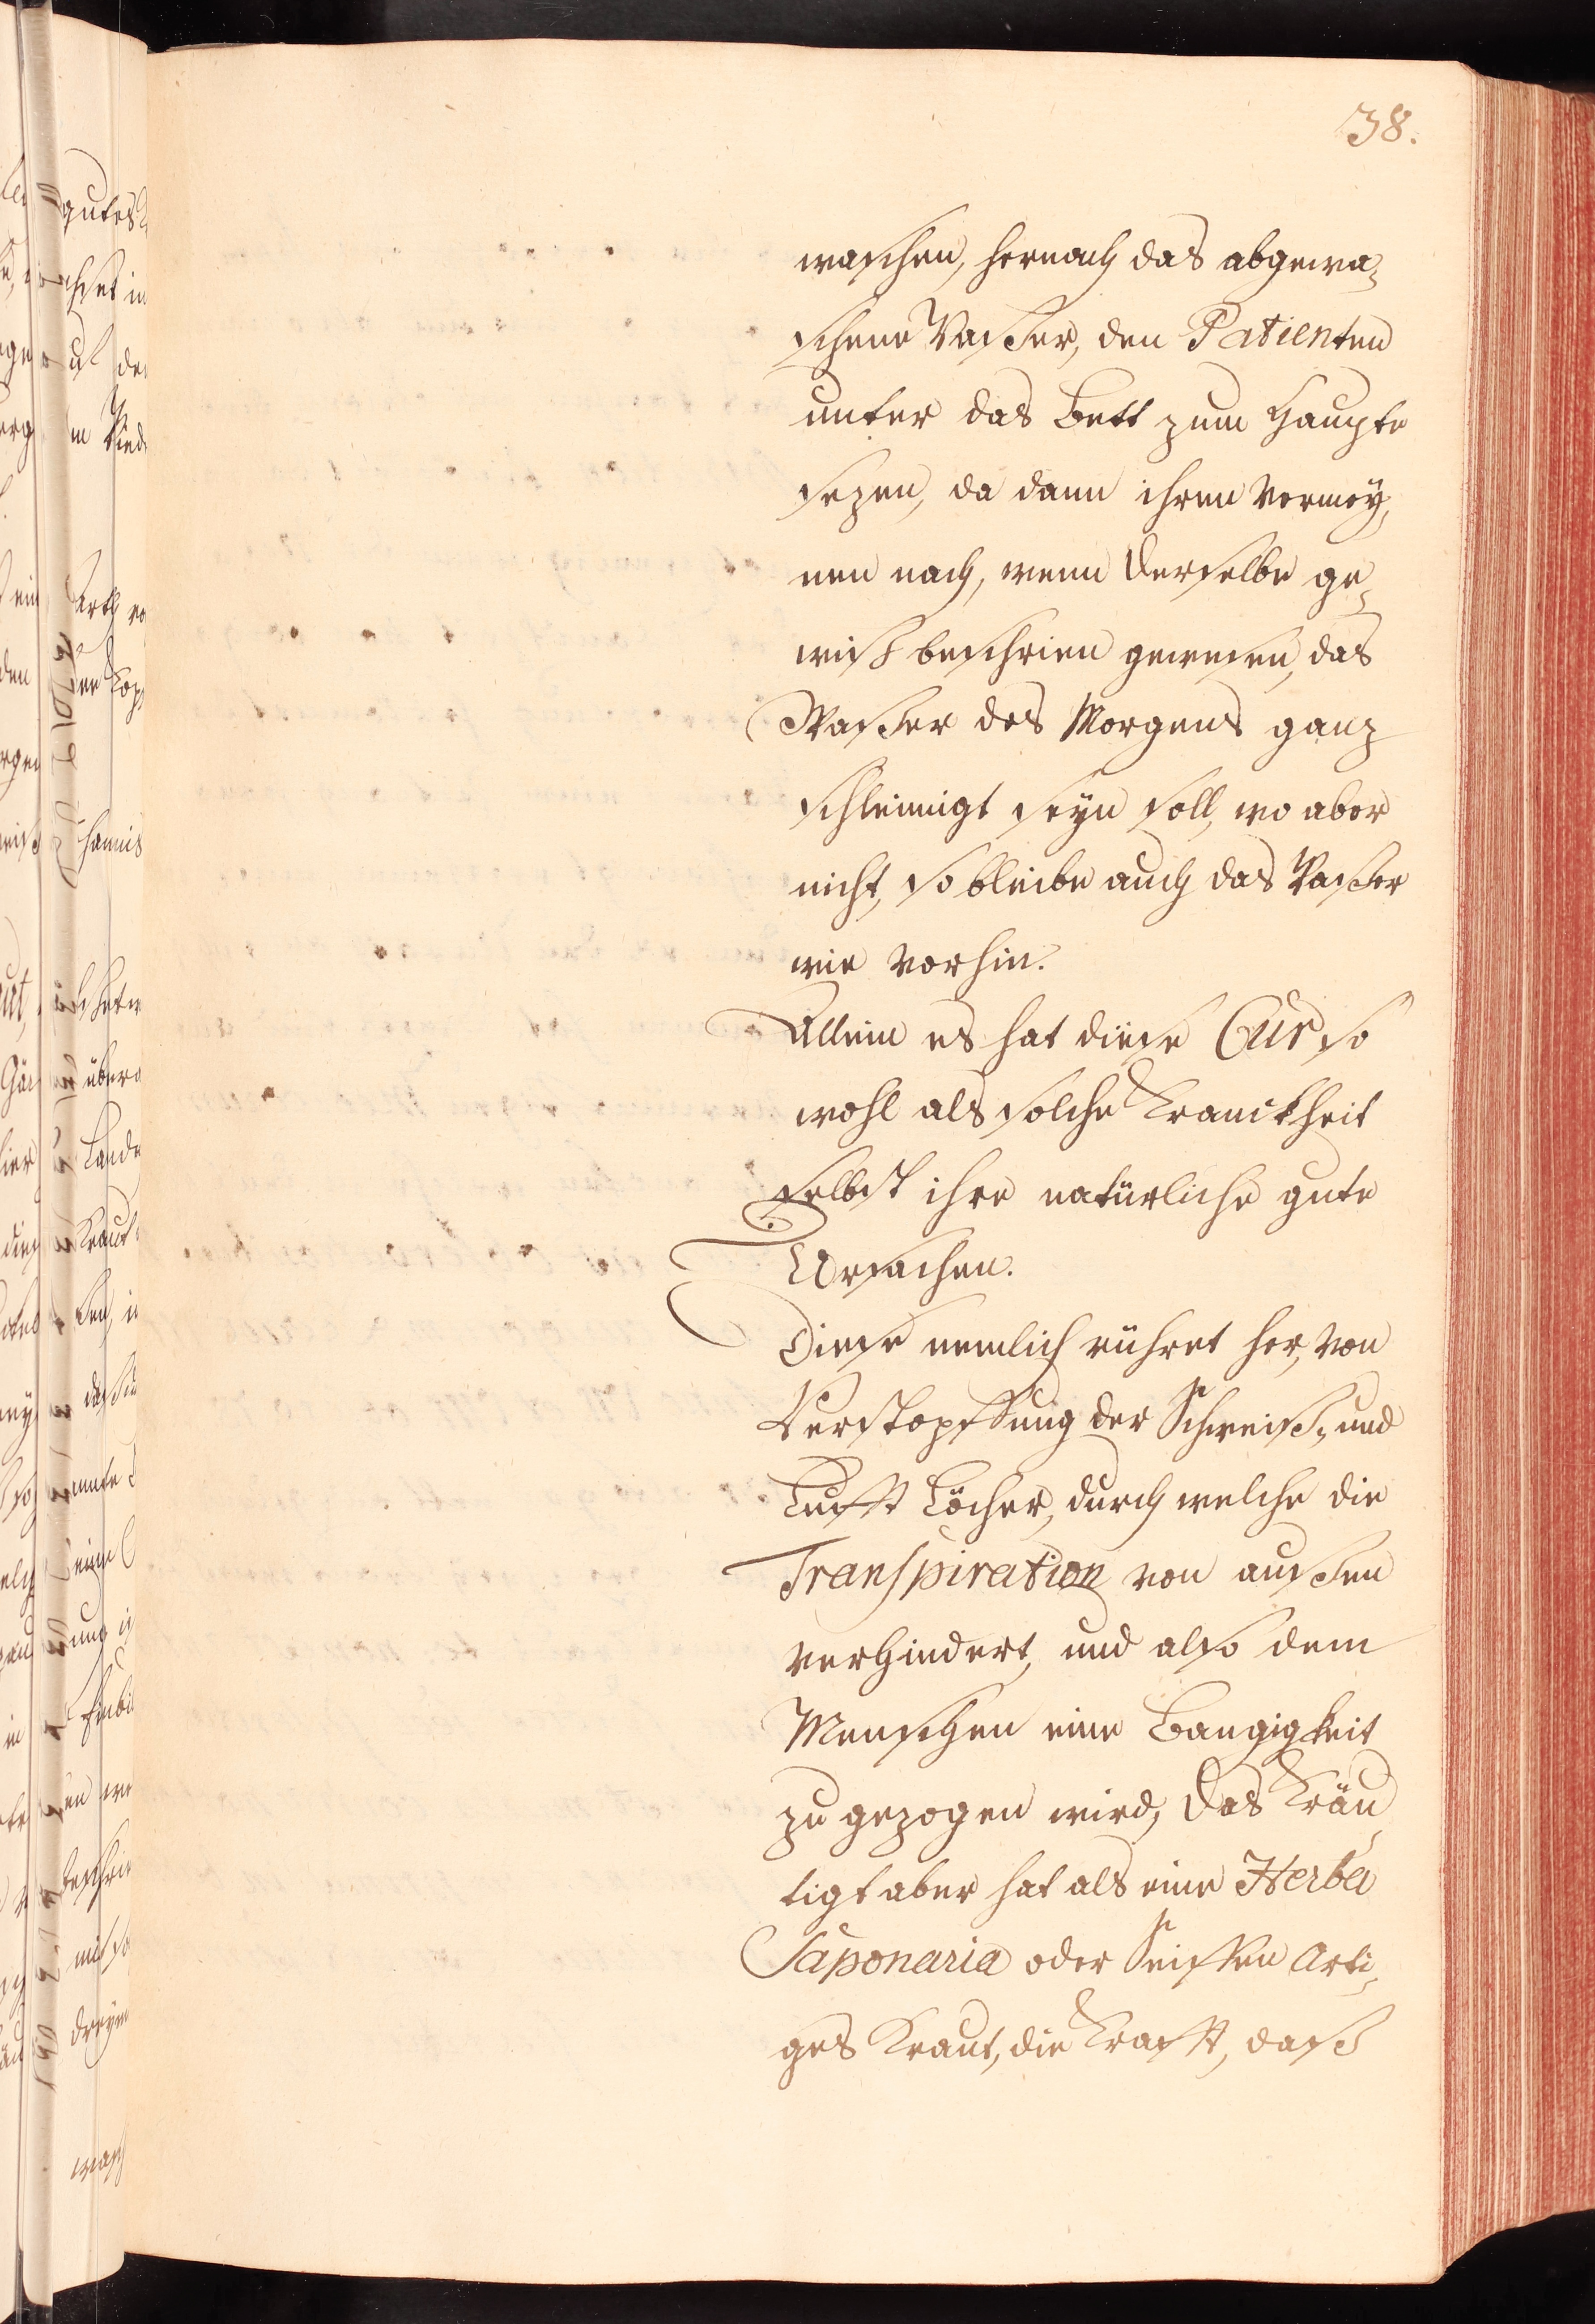 38.
waschen, hernach das abgewa-
schene Wasser, den Patienten
unter das Bett zum Haupte
sezen, da dann ihren Vermey-
nen nach, wenn derselbe ge-
wiß beschrien gewesen, das
Wasser des Morgens ganz
schleimigt seyn soll, wo aber
nicht, so bleibe auch das Wasser
wie vorhin.
Allein es hat diese Cur so
wohl als solche Kranckheit
selbst ihre natürliche gute
Ursachen.
Diese nemlich rühret her, von
Verstopffung der Schweiß- und
Lufft Löcher, durch welche die
Transpiration von aussen
verhindert, und also dem
Menschen eine Bangigkeit
zu gezogen wird, das Kräu-
tigt aber hat als eine Herba
Saponaria oder Seiffen Arti-
ges Kraut, die Krafft, daß